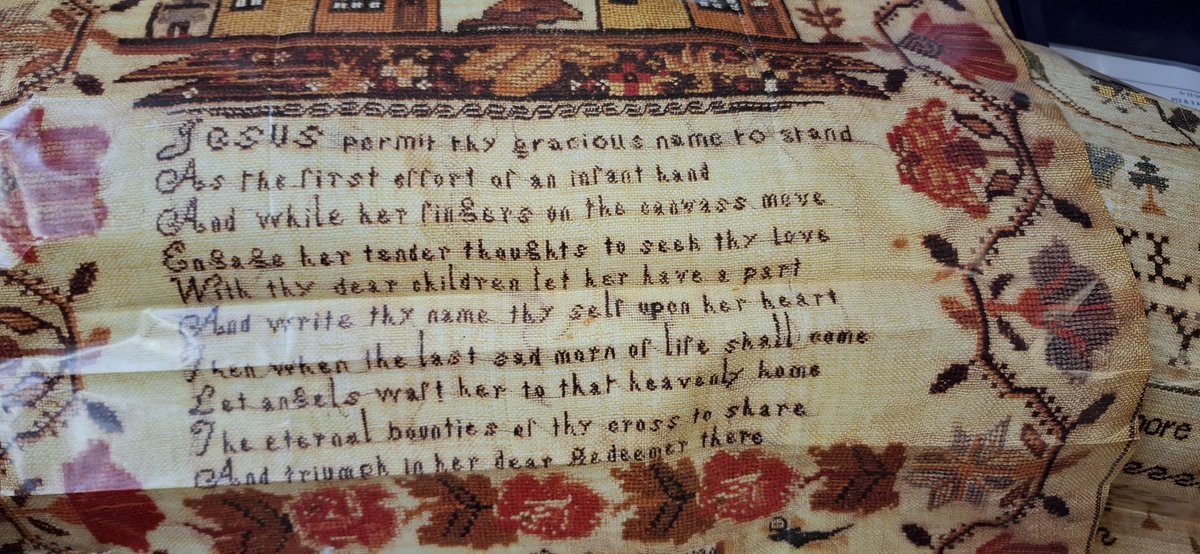 Jesus permit thy gracious name to stand
As the first effort of an infant hand
And while her fingers on the canvass move
Engage her tender thoughts to seek thy love
With thy dear children let her have a part
And write thy name thy self upon her heart
Then when the last sad morn of life shall come
Let angels waft her to that heavenly home
The eternal bounties of thy cross to share
And triumph in her dear Redeemer there